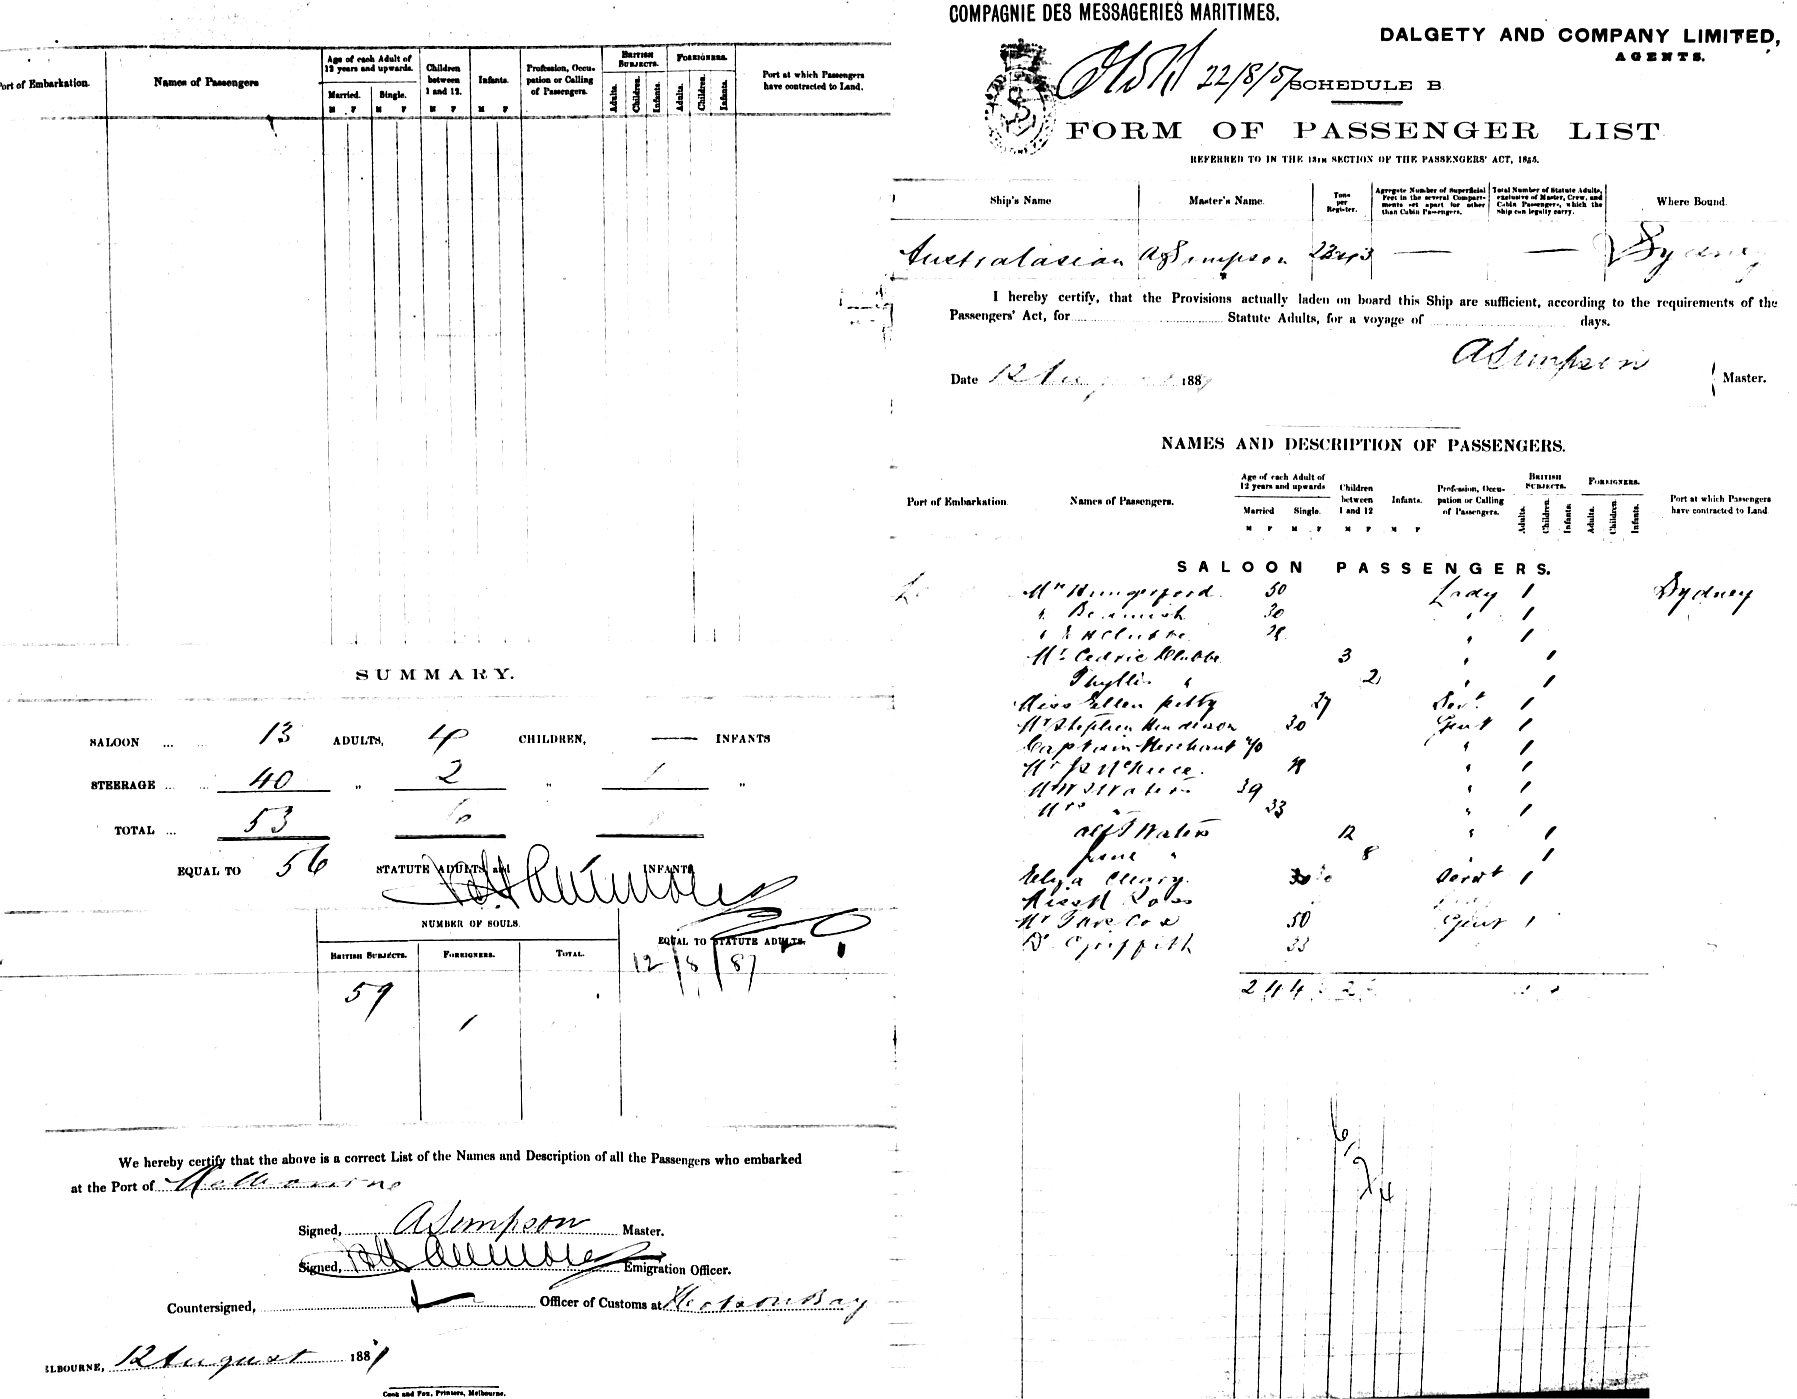 Port of Embarkation. Names of Passengers Age of each Adult of 12 years and upwards. Children between 1 and 12. Infants. Profession, Occupation or Calling of Passengers. BRITISH SUBJECTS. FOREIGNERS. Port at which Passengers have contracted to Land.
Married. Single.
M F M F M F M F Adults. Children. Infants. Adults. Children. Infants.
SUMMARY.
SALOON ... ... 13 ADULTS, 4 CHILDREN, — INFANTS
STEERAGE ... ... 40 " 2 " 1 "
TOTAL ... 53 6
EQUAL TO 56 STATUTE ADULTS, and INFANTS
NUMBER OF SOULS.
EQUAL TO STATUTE ADULTS.
BRITISH SUBJECTS. FOREIGNERS. TOTAL.
12/8/87
59
1
We hereby certify that the above is a correct List of the Names and Description of all the Passengers who embarked
at the Port of Melbourne
Signed, A Simpson Master.
Signed, Emigration Officer.
Countersigned, Officer of Customs at Hobson Bay
ELBOURNE, 12 August 1887
Cook and Fox, Printers, Melbourne.
COMPAGNIE DES MESSAGERIES MARITIMES.
DALGETY AND COMPANY LIMITED,
AGENTS.
22/8/87
SCHEDULE B
FORM OF PASSENGER LIST
REFERRED TO IN THE 13TH SECTION OF THE PASSENGERS' ACT, 1855.
Ship's Name Master's Name. Tons per Register. Agregate Number of Superficial Feet in the several Compartments set apart for other than Cabin Passengers. Total Number of Statute Adults, exclusive of Master, Crew, and Cabin Passengers, which the Ship can legally carry. Where Bound.
Australasian A Simpson 2343 — — Sydney
I hereby certify, that the Provisions actually laden on board this Ship are sufficient, according to the requirements of the
Passengers' Act, for Statute Adults, for a voyage of days.
A Simpson
Date 12 August 1887 Master.
NAMES AND DESCRIPTION OF PASSENGERS.
Port of Embarkation. Names of Passengers. Age of each Adult of 12 years and upwards Children between 1 and 12 Infants. Profession, Occupation or Calling of Passengers. BRITISH SUBJECTS. FOREIGNERS. Port at which Passengers have contracted to Land
Married Single.
M F M F M F M F Adults. Children. Infants. Adults. Children. Infants.
SALOON PASSENGERS.
Mrs Hungerford 50 Lady 1 Sydney
" Beamish 30 " 1
" Clubbe " 1
Mr Cedric Clubbe 3 " 1
Phyllis " 2 " 1
Miss Ellen Petty 27 Servt 1
Mr Stephen Henderson 30 Gent 1
Captain Merchant 40 " 1
Mr " 1
Mr W Waters 39 " 1
Mrs " 33 " 1
Alf Waters 12 " 1
June " 8 1
Eliza Cleary 30 Servt 1
Miss Ross
Mr Cox 50 Gent 1
Dr Griffith 33
2 4 4 2